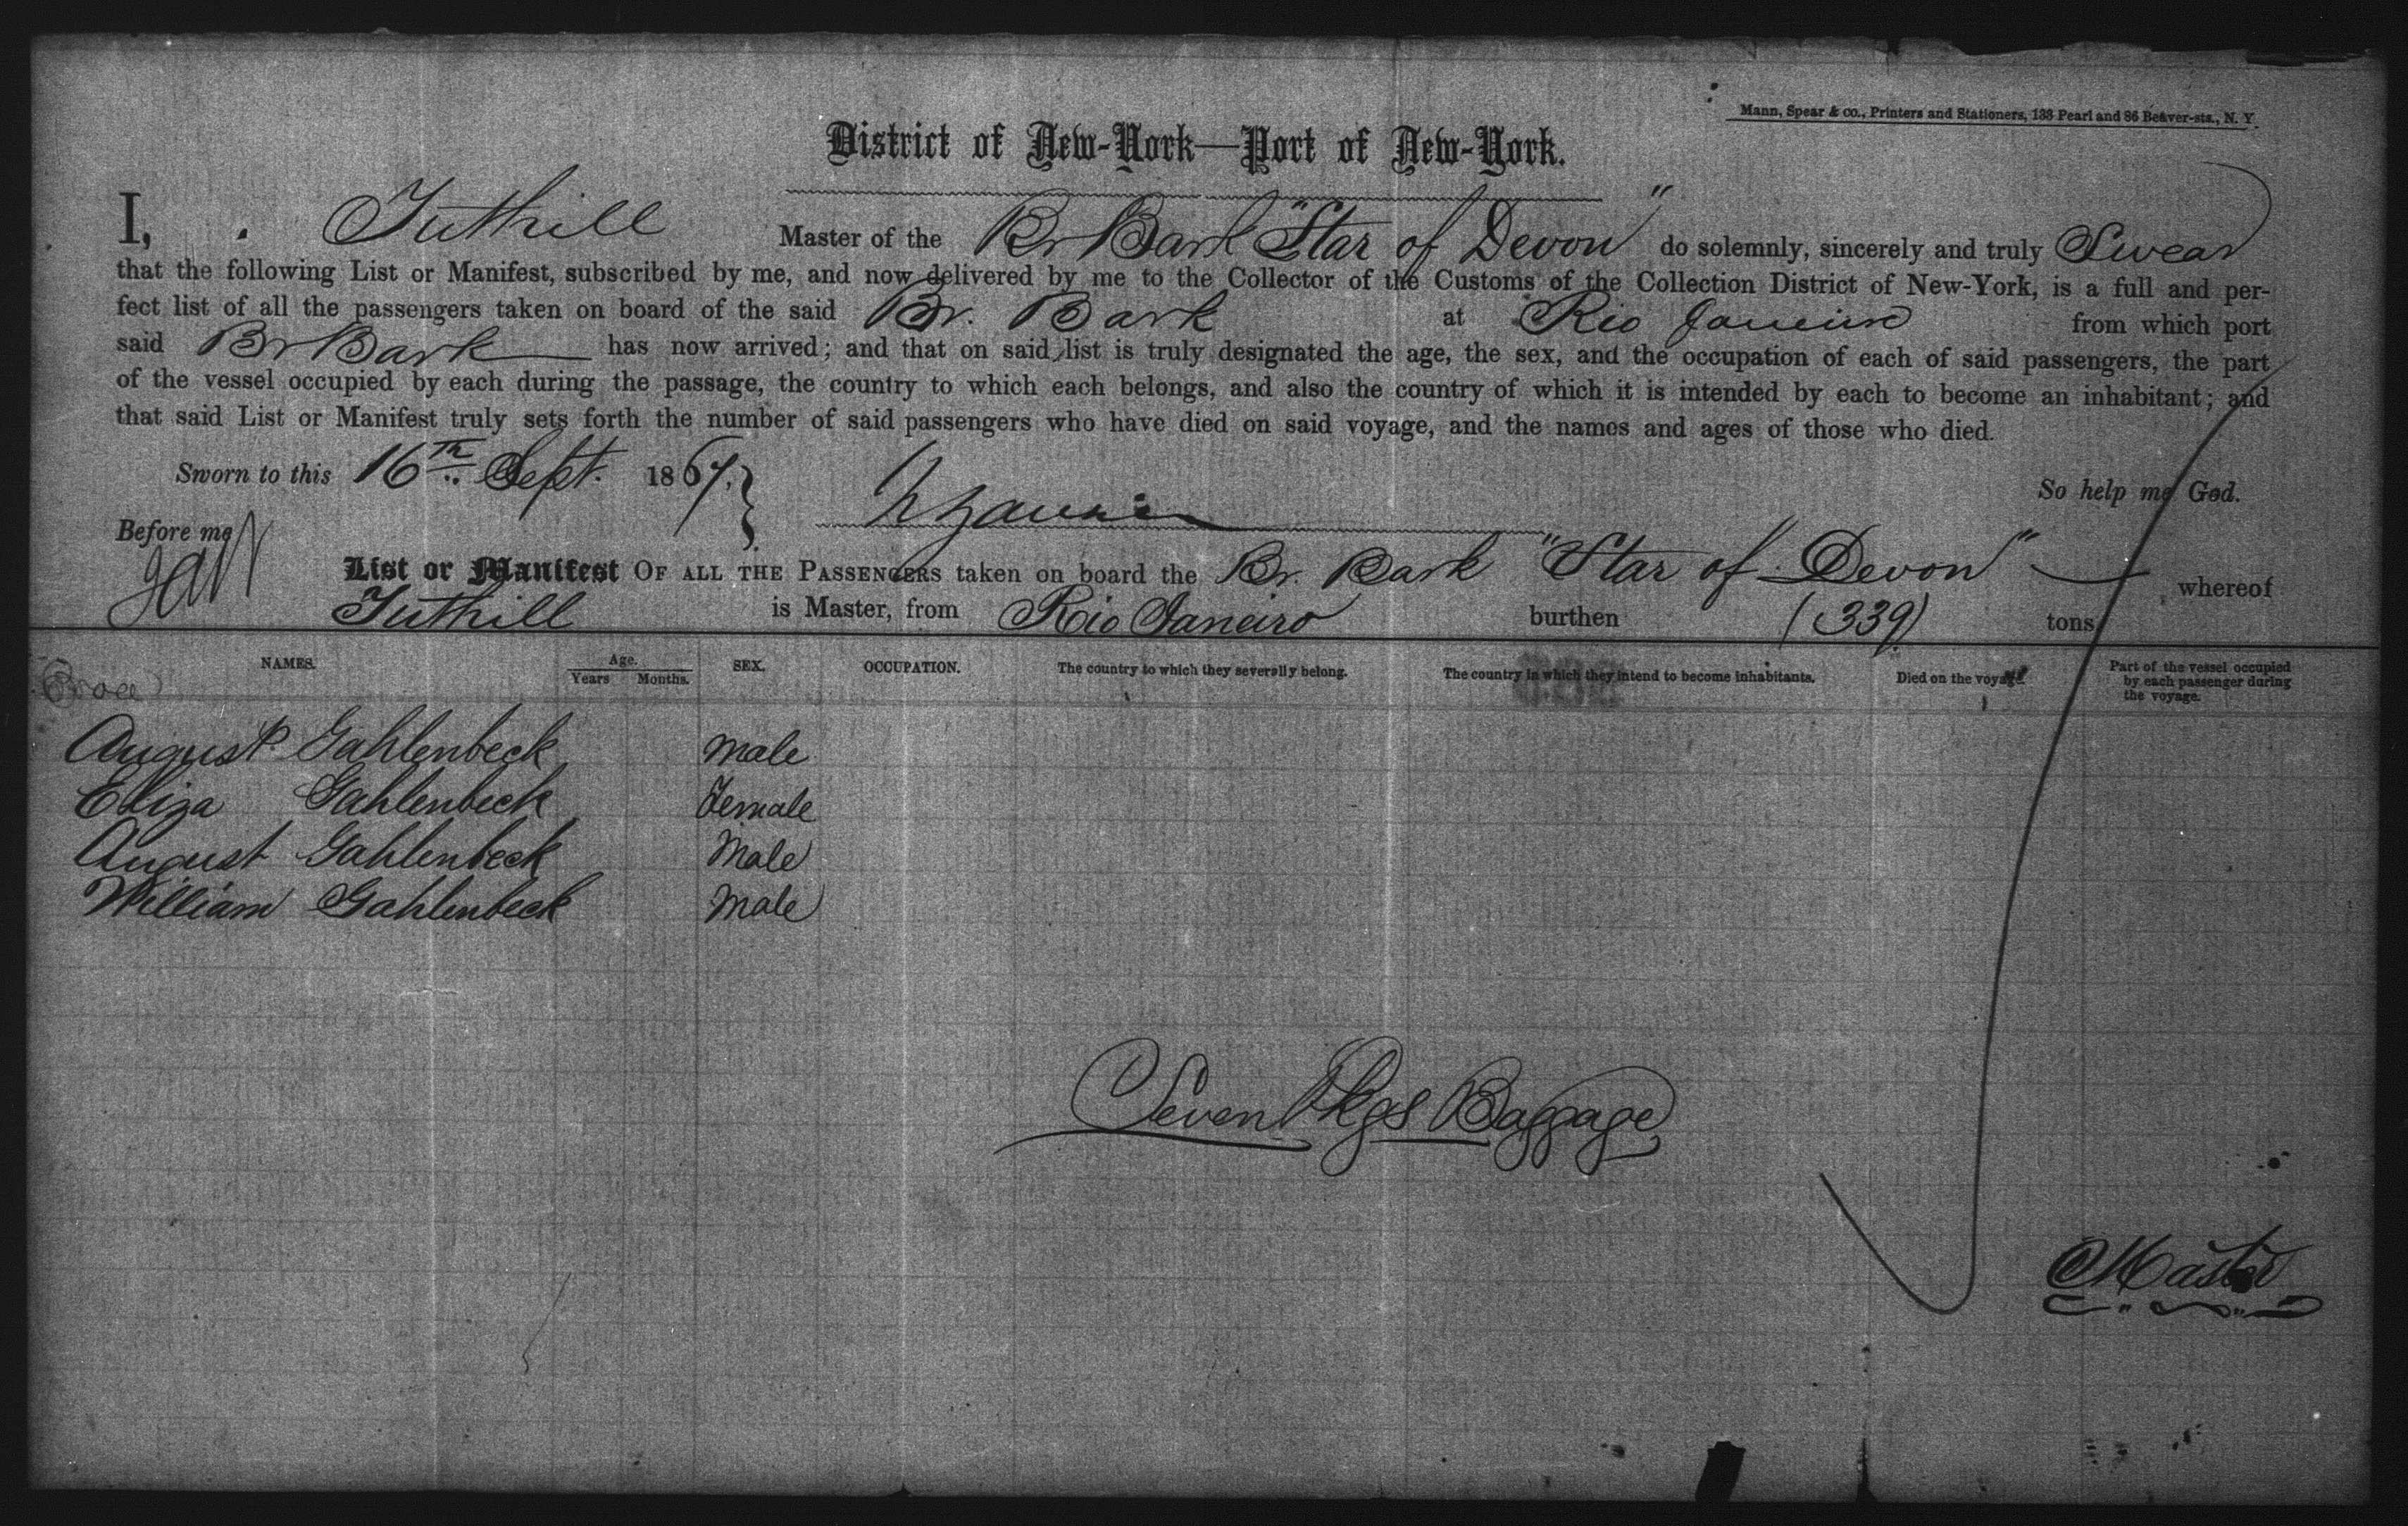 Mann, Spear & co., Printers and Stationers, 138 Pearl and 86 Beaver-sts., N. Y.
District of New-York—Port of New-York.
I, Tuthill Master of the Br Bark "Star of Devon" do solemnly, sincerely and truly Swear
that the following List or Manifest, subscribed by me, and now delivered by me to the Collector of the Customs of the Collection District of New-York, is a full and per-
fect list of all the passengers taken on board of the said Br. Bark at Rio Janeiro from which port
said Br Bark has now arrived; and that on said list is truly designated the age, the sex, and the occupation of each of said passengers, the part
of the vessel occupied by each during the passage, the country to which each belongs, and also the country of which it is intended by each to become an inhabitant; and
that said List or Manifest truly sets forth the number of said passengers who have died on said voyage, and the names and ages of those who died.
Sworn to this 16th Sept. 1867. So help me God.
Before me
List or Manifest OF ALL THE PASSENGERS taken on board the Br. Bark "Star of Devon" whereof
Tuthill is Master, from Rio Janeiro burthen (339) tons
NAMES. Age. Years Months. SEX. OCCUPATION. The country to which they severally belong. The country in which they intend to become inhabitants. Died on the voyage. Part of the vessel occupied by each passenger during the voyage.
August Gahlenbeck Male
Eliza Gahlenbeck Female
August Gahlenbeck Male
William Gahlenbeck Male
Seven Pkgs Baggage
Master